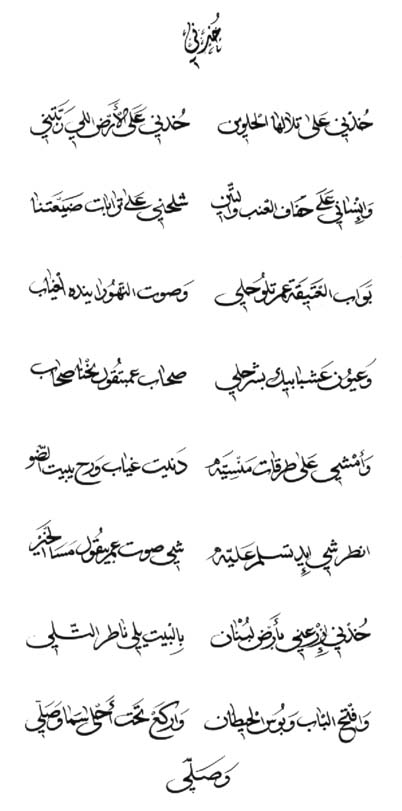 خُدْني
خُدْني عَلى تلالها الحلوين خُدْني عَلى الأرض اللي رَبَّتني
وَانْساني عَلى حفاف العنب والتين شلحني على ترابات ضَيْعَتنا
بَوَاب العَتيقة عم تلَوحلي وَصَوت النهورا ينده الغياب
وَعيون عَشبابيك بتشرحلي صحاب عمبتقول نحْنا صحاب
وَأمْشي عَلى طرقات مَنْسيّه دَنيت غياب وَرح يبيت الضو
انطر شي إيد تسلم عليّه شي صَوت عم بيقول مسا الخير
خُدْني إزْرعني بأرض لبْنان بالبيت يلي ناطر التلي
وَافْتح البَاب وَبوس الحيطان وَاركع تحت أحلى سَما وصَلّي
وَصَلّي